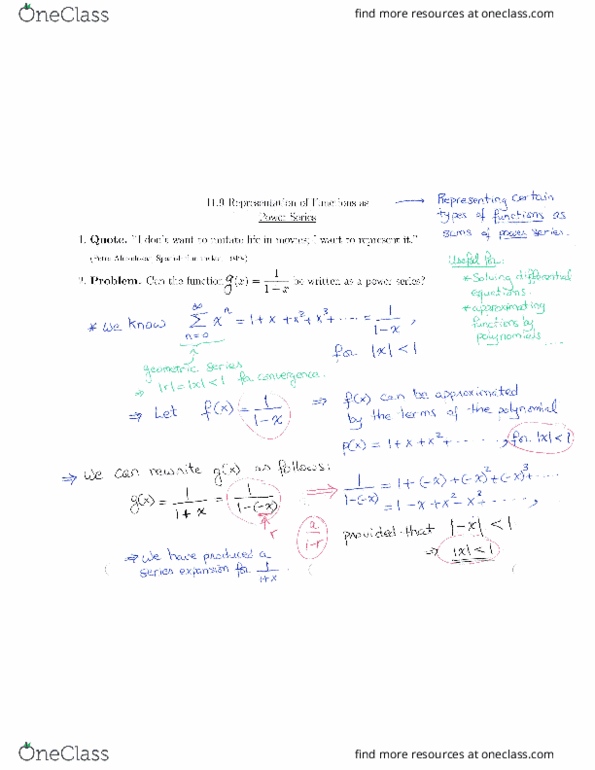 OneClass
find more resources at oneclass.com
11.9 Representation of Functions as
Power Series
→ Representing certain
types of functions as
sums of power series.
1. Quote. "I don't want to imitate life in movies; I want to represent it."
Useful for:
* Solving differential
equations.
* approximating
functions by
polynomials
2. Problem. Can the function g(x) = 1/(1 - x) be written as a power series?
* We know ∞ Σ n=0 xⁿ = 1 + x + x² + x³ + ····· = 1/(1-x) ,
for |x| < 1
geometric series
⇒ |r| = |x| < 1 for convergence.
⇒ Let f(x) = 1/(1-x)
⇒ f(x) can be approximated
by the terms of the polynomial
p(x) = 1 + x + x² + ······ , for |x| < 1
⇒ We can rewrite g(x) as follows:
g(x) = 1/(1+x) = 1/(1-(-x)) ⟹ 1/(1-(-x)) = 1 + (-x) + (-x)² + (-x)³ + ····
= 1 - x + x² - x³ + ······ ,
r
a/(1-r)
provided that |-x| < 1
⇒ |x| < 1
⇒ We have produced a
series expansion for 1/(1+x).
OneClass
find more resources at oneclass.com